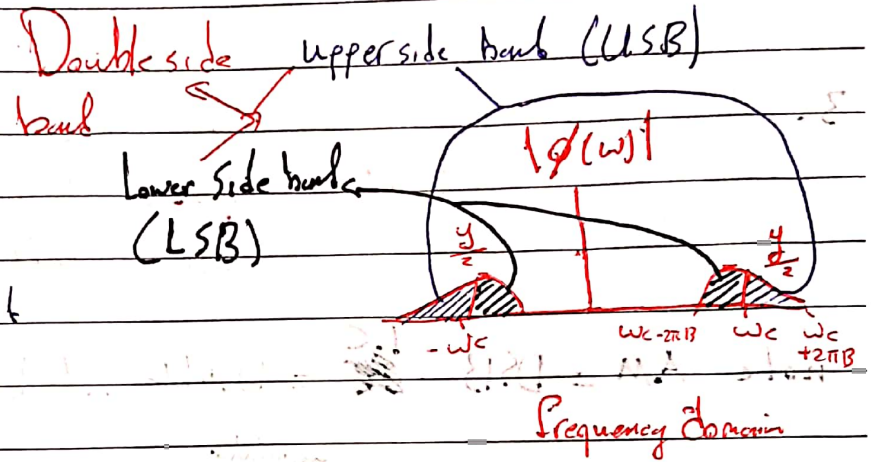 Double side upper side band (USB)
band
|ϕ(ω)|
Lower Side band
(LSB)
y/2 y/2
t
-ωc ωc-2πB ωc ωc+2πB
frequency domain